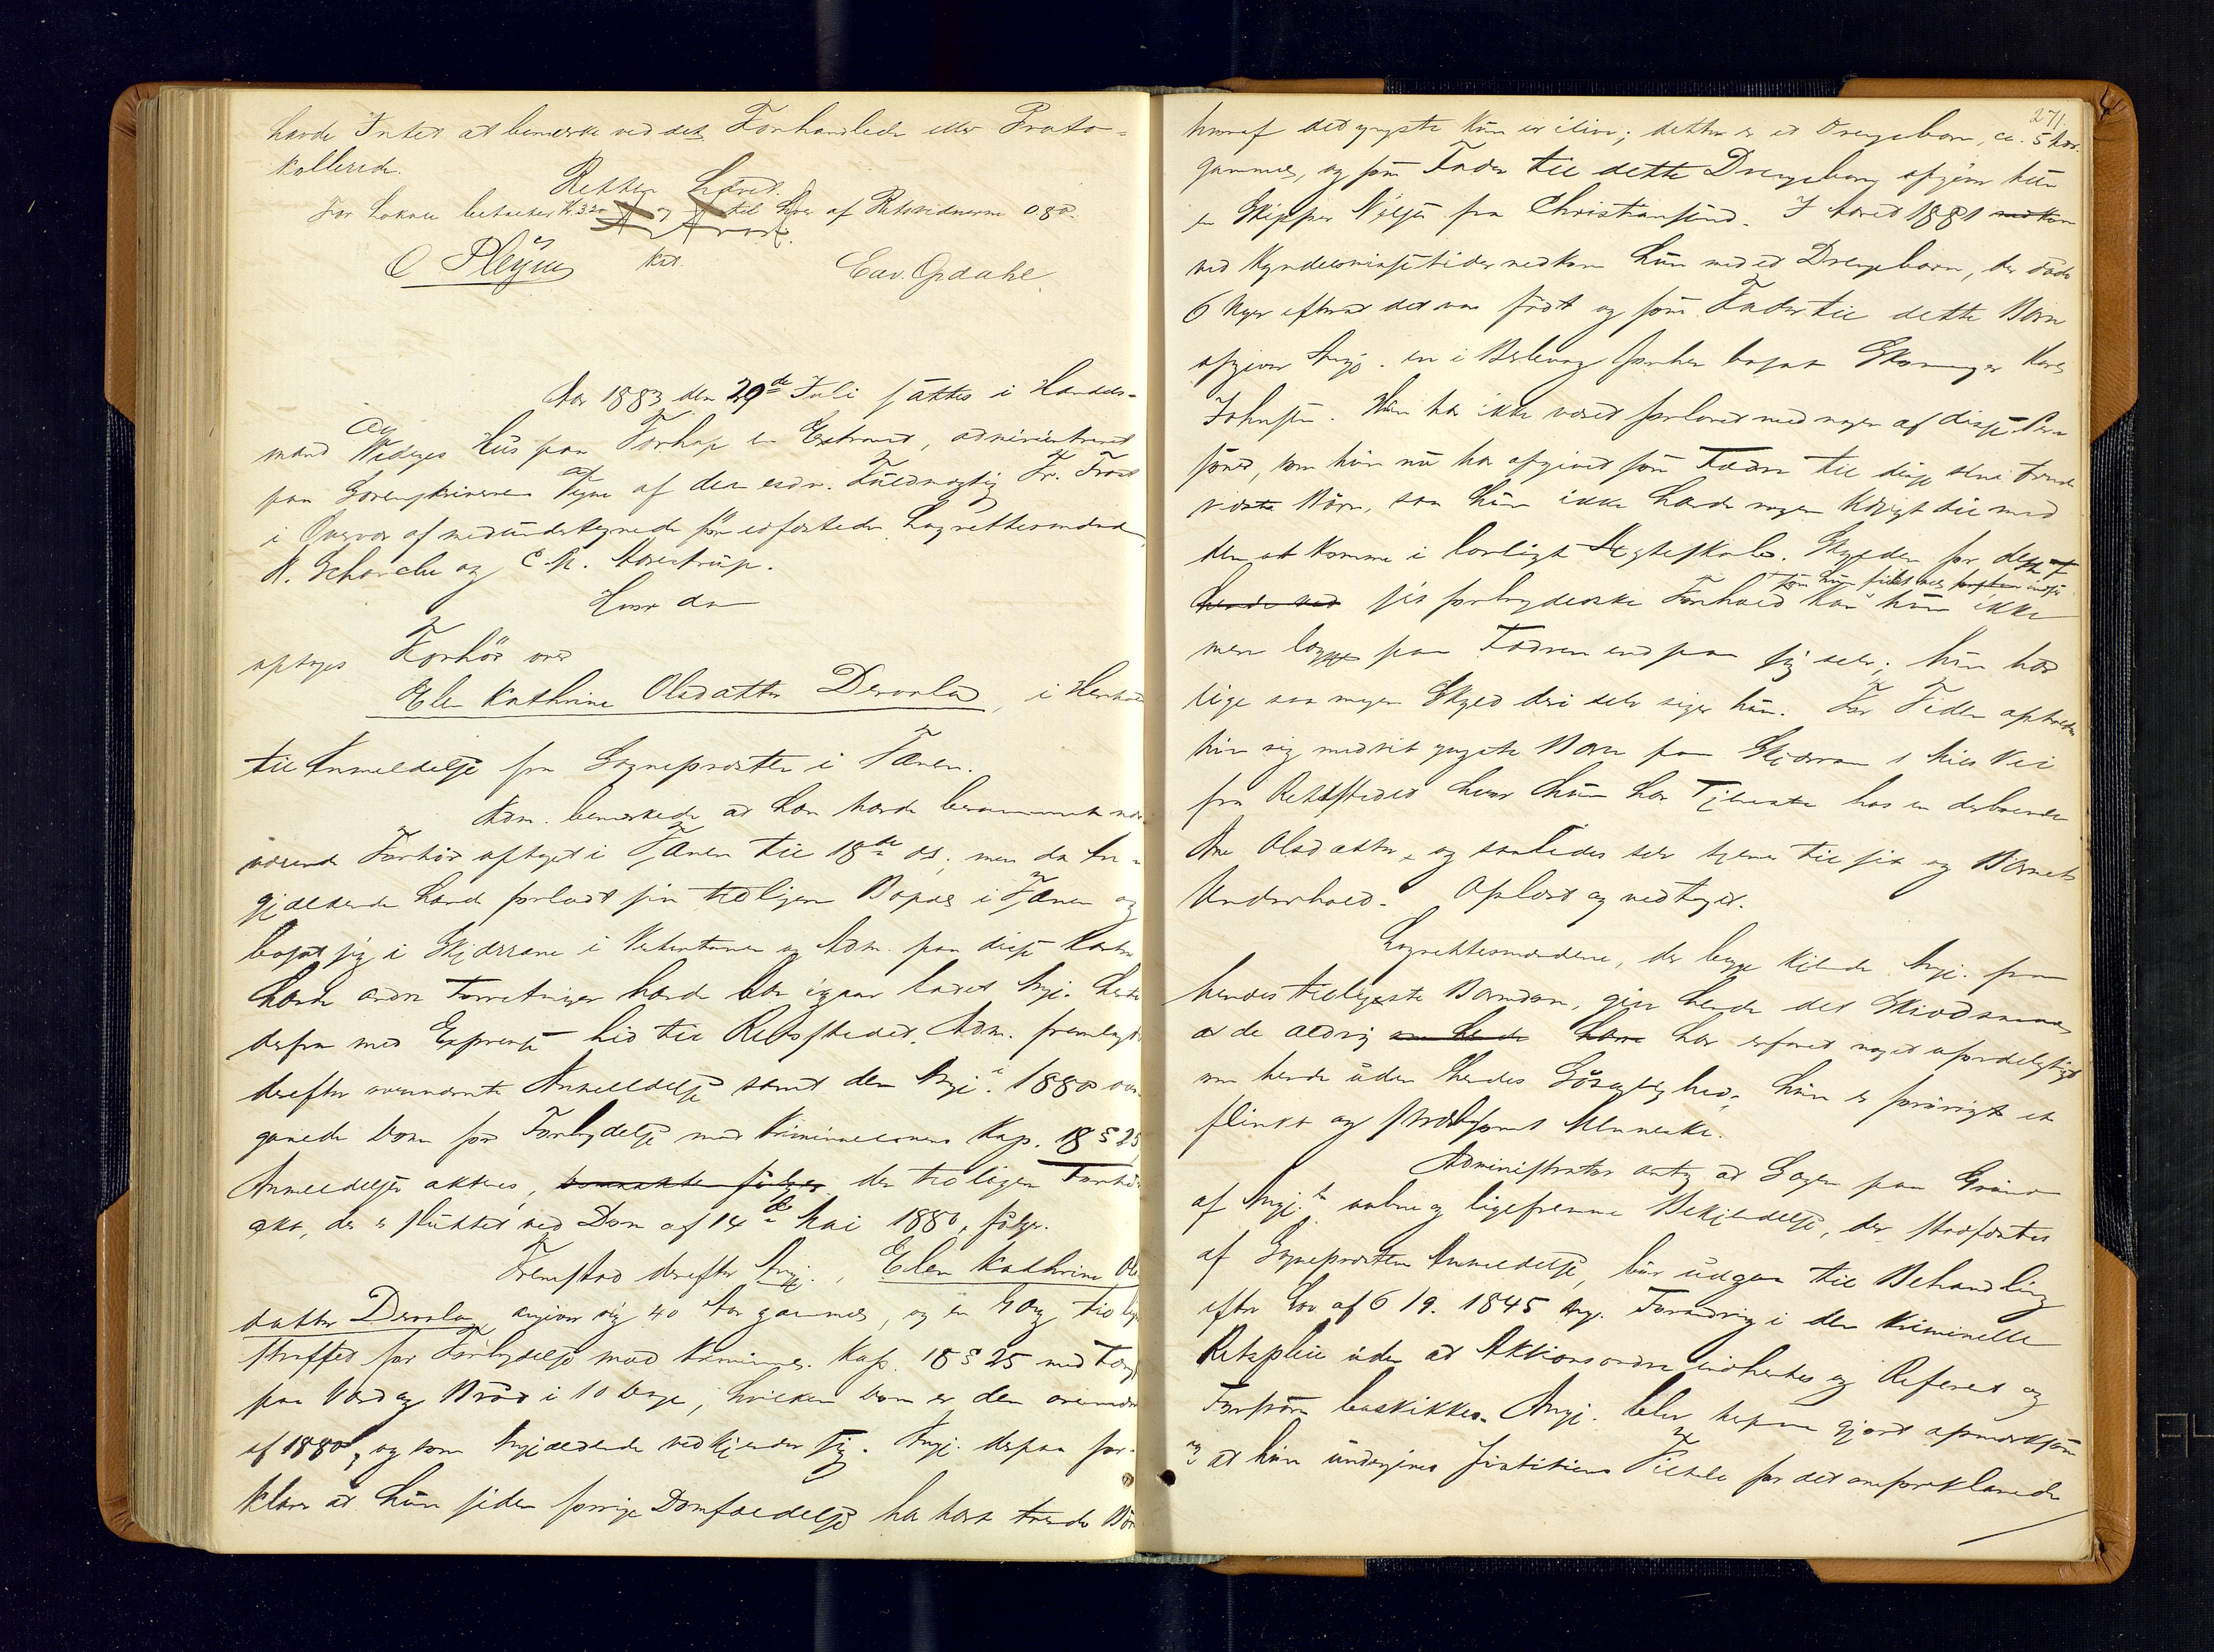 havde Intet at bemærke ved det Forhandlede eller Proto-
kollerede.
Retten Hævet.
For Lokale betaltes Kr. 3.20 og til hver af Retsvidnerne 0 80.
Kst.
C Pleym
Edv. Opdahl.
Aar 1883 den 29de Juli sattes i Handels-
mand Wedeges Hus paa Torhop en Extraret, administreret
paa Sorenskriverens Vegne af den edsv. Fuldmægtig Fr. Frost
i Overvær af medundertegnede før edfæstede Lagrettesmænd
N. Schanche og C. M. Aarestrup.
Hvor da
optoges Forhør over
Elen Kathrine Olsdatter Dervola, i Henhold
til Anmeldelse fra Sognepresten i Tanen.
Adm. bemærkede at han havde berammet nær-
værende Forhør optaget i Tanen til 18de ds., men da An-
gjældende havde forladt sin tidligere Bopæl i Tanen og
bosat sig i Skjaanes i Vestertanen og Adm. paa disse Kanter
havde andre Forretninger havde han igaar ladet Angj. hente
derfra med Express hid til Retsstedet. Adm. fremlagde
derefter ovennævnte Anmeldelse samt den Angj. i 1880 over-
gaaede Dom for Forbrydelse mod Kriminallovens Kap. 18 § 25
Anmeldelsen akteres, den tidligere Forhørs-
akt, der er sluttet ved Dom af 14de Mai 1880, følger.
Fremstod derefter Angj., Elen Kathrine Ols-
datter Dervola, angiver sig 40 Aar gammel, og en Gang tidligere
straffet for Forbrydelse mod Kriminall. Kap. 18 § 25 med Fængsel
paa Vand og Brød i 10 Dage, hvilken Dom er den ovennævnte
af 1880, og som Angjældende vedkjender sig. Angj. derpaa for-
klarer at hun siden forrige Domfældelse har havt trende Børn
271.
hvoraf det yngste kun er ilive; dette er et Drengebarn, ca. 5 Aar
gammel, og som Fader til dette Drengebarn opgiver hun
en Skipper Nilsen fra Christiansund. I Aaret 1881
ved Kyndelsmissetider nedkom hun med et Drengebarn, der døde
6 Uger efterat det var født og som Fader til dette Barn
opgiver Angj. en i Berlevaag forhen bosat Skomager Karl
Johnsen. Hun har ikke været forlovet med nogen af disse Per-
soner, som hun nu har opgivet som Fædre til disse sine trende
Børn, saa hun ikke havde nogen Udsigt til med
dem at komme i lovligt Ægteskab. Skylden for dette
som hun fuldt vel indser
sit forbryderske Forhold kan hun ikke
mere lægge paa Fædrene end paa sig selv; hun har
lige saa megen Skyld deri selv siger hun. For Tiden opholder
hun sig med sit yngste Barn paa Skjaanes 1 Mils Vei
fra Retsstedet hvor hun har Tjeneste hos en derboende
Ane Olsdatter, og saaledes selv tjener til sit og Barnets
Underhold. Oplæst og vedtaget.
Lagrettesmændene, der begge kjende Angj. fra
hendes tidligste Barndom, giver hende det Skudsmaal
at de aldrig har erfaret noget ufordelagtigt
om hende uden hendes Løsagtighed. Hun er forøvrigt et
flinkt og strævsomt Menneske.
Administrator antog at Sagen paa Grund
af Angj.s aabne og ligefremme Bekjendelse, der stadfæstes
af Sogneprestens Anmeldelse, bør udgaa til Behandling
efter Lov af 6/9. 1845 Ang. Forandring i den kriminelle
Retspleie uden at Aktionsordre indhentes og Referat og
Forsvar beskikkes. Angj. blev derpaa gjort opmærksom
paa at hun undergives Justitiens Tiltale for det omforklarede